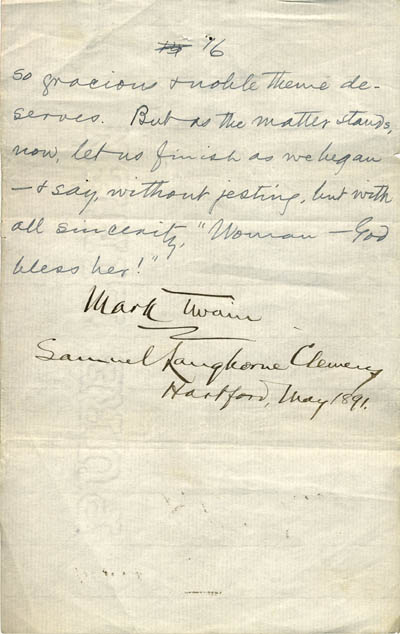 16
so gracious & noble theme de-
serves. But as the matter stands,
now, let us finish as we began
— & say, without jesting, but with
all sincerity, "Woman — God
bless her!"
Mark Twain
Samuel Langhorne Clemens
Hartford, May 1891.